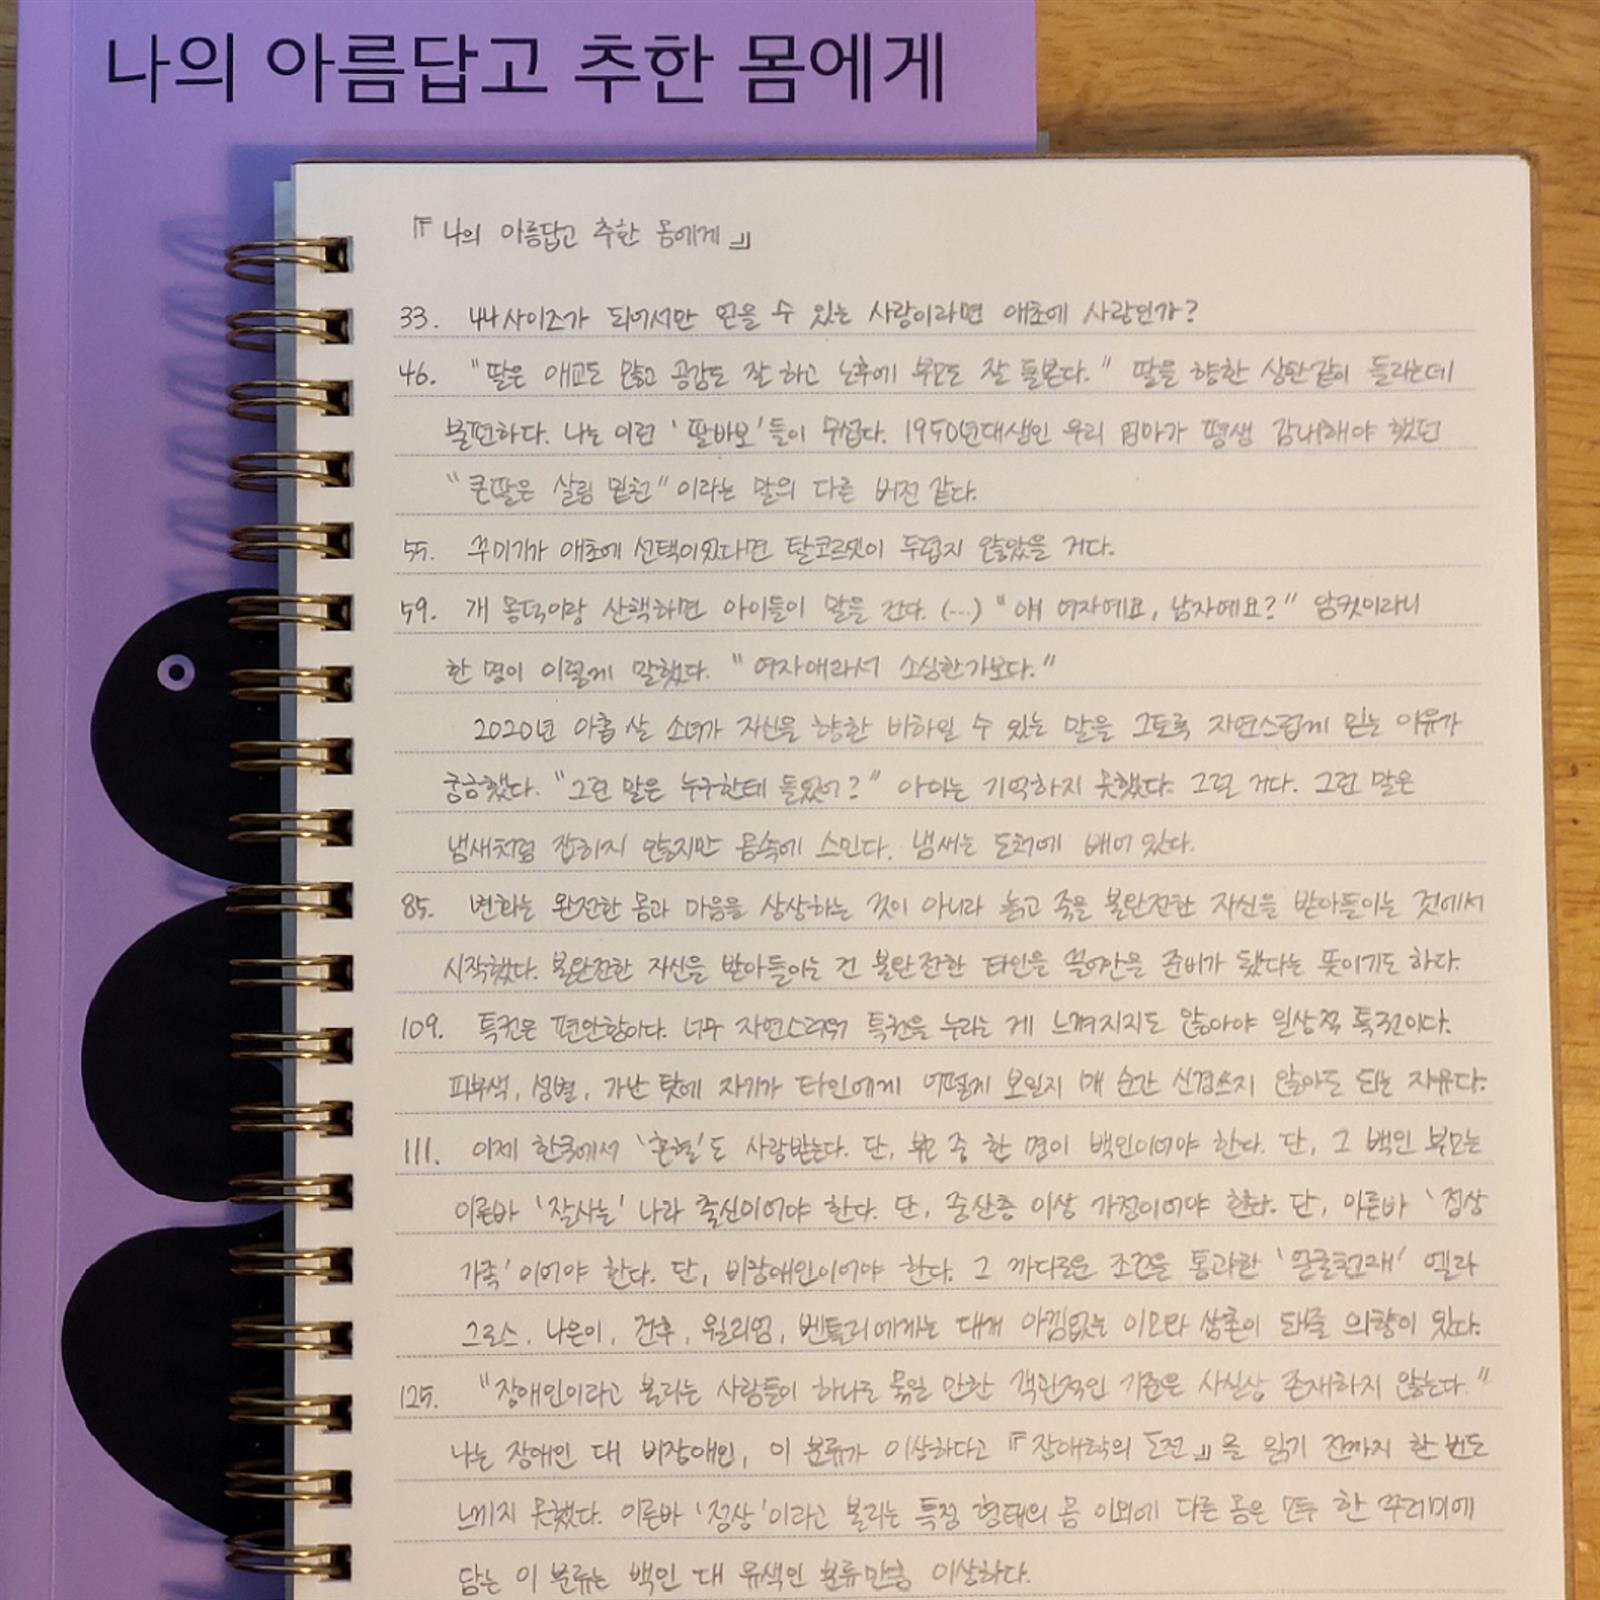 나의 아름답고 추한 몸에게
『나의 아름답고 추한 몸에게』
33. 44사이즈가 되어서만 얻을 수 있는 사랑이라면 애초에 사랑인가?
46. "딸은 애교도 많고 공감도 잘 하고 노후에 부모도 잘 돌본다." 딸을 향한 상찬같이 들리는데
불편하다. 나는 이런 '딸바보'들이 무섭다. 1950년대생인 우리 엄마가 평생 감내해야 했던
"큰딸은 살림 밑천"이라는 말의 다른 버전 같다.
55. 꾸미기가 애초에 선택이었다면 탈코르셋이 두렵지 않았을 거다.
59. 개 몽덕이랑 산책하면 아이들이 말을 건다. (…) "얘 여자예요, 남자예요?" 암컷이라니
한 명이 이렇게 말했다. "여자애라서 소심한가보다."
2020년 아홉 살 소녀가 자신을 향한 비하일 수 있는 말을 그토록 자연스럽게 믿는 이유가
궁금했다. "그런 말은 누구한테 들었어?" 아이는 기억하지 못했다. 그럴 거다. 그런 말은
냄새처럼 잡히지 않지만 몸속에 스민다. 냄새는 도처에 배어 있다.
85. 변화는 완전한 몸과 마음을 상상하는 것이 아니라 늙고 죽을 불완전한 자신을 받아들이는 것에서
시작했다. 불완전한 자신을 받아들이는 건 불완전한 타인을 끌어안을 준비가 됐다는 뜻이기도 하다.
109. 특권은 편안함이다. 너무 자연스러워 특권을 누리는 게 느껴지지도 않아야 일상적 특권이다.
피부색, 성별, 가난 탓에 자기가 타인에게 어떻게 보일지 매 순간 신경쓰지 않아도 되는 자유다.
111. 이제 한국에서 '혼혈'도 사랑받는다. 단, 부모 중 한 명이 백인이어야 한다. 단, 그 백인 부모는
이른바 '잘사는' 나라 출신이어야 한다. 단, 중산층 이상 가정이어야 한다. 단, 이른바 '정상
가족'이어야 한다. 단, 비장애인이어야 한다. 그 까다로운 조건을 통과한 '얼굴천재' 엘라
그로스, 나은이, 건후, 윌리엄, 벤틀리에게는 대개 아낌없는 이모와 삼촌이 돼줄 의향이 있다.
125. "장애인이라고 불리는 사람들이 하나로 묶일 만한 객관적인 기준은 사실상 존재하지 않는다."
나는 장애인 대 비장애인, 이 분류가 이상하다고 『장애학의 도전』을 읽기 전까지 한 번도
느끼지 못했다. 이른바 '정상'이라고 불리는 특정 형태의 몸 이외에 다른 몸은 모두 한 꾸러미에
담는 이 분류는 백인 대 유색인 분류만큼 이상하다.